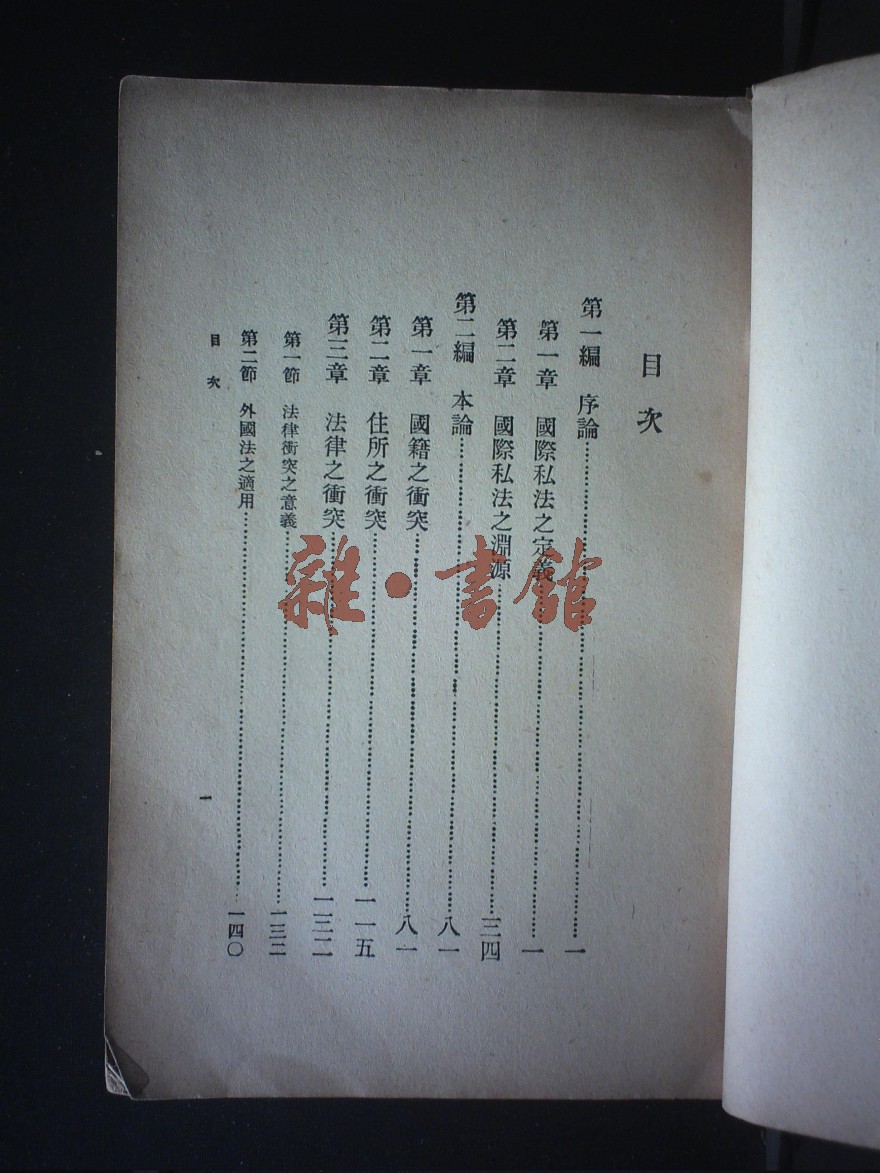 目次
第一編 序論……一
第一章 國際私法之定義……一
第二章 國際私法之淵源……三四
第二編 本論……八一
第一章 國籍之衝突……八一
第二章 住所之衝突……一一五
第三章 法律之衝突……一三二
第一節 法律衝突之意義……一三二
第二節 外國法之適用……一四〇
目次
一
雜·書館